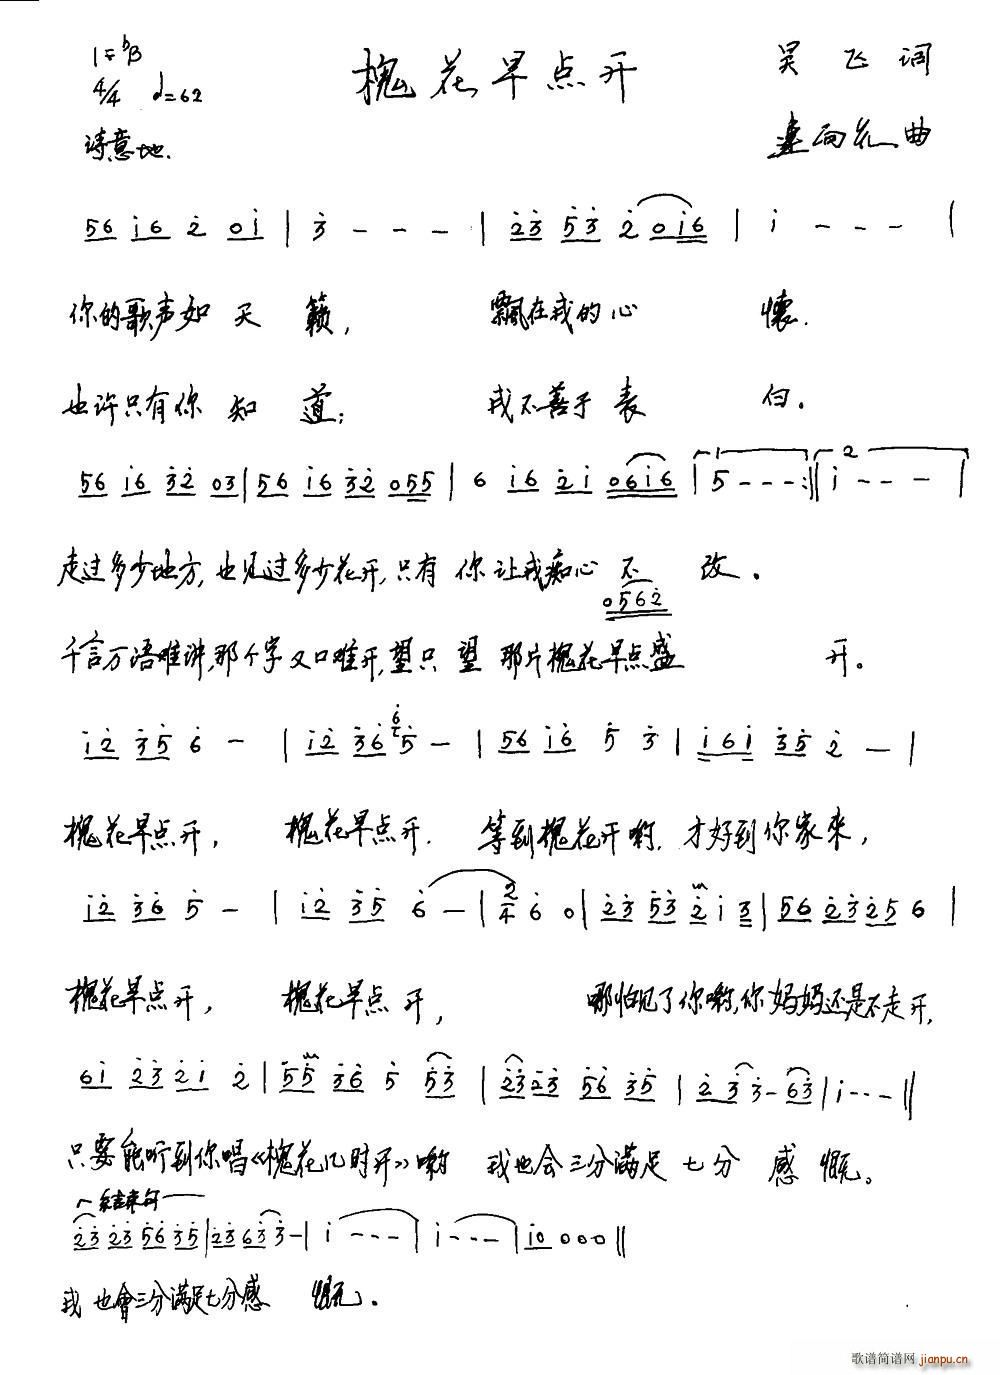 1=bB
槐花早点开
吴飞词
4/4 ♩=62
诗意地.
曲
56 i6 2 0i | 3 - - - | 23 53 2 0i6 | i - - - |
你的歌声如天籁, 飘在我的心怀.
也许只有你知道; 我不善于表白.
56 i6 32 03 | 56 i6 32 055 | 6 i6 2i 06i6 | 1 5 - - - :|| 2 i - - - |
走过多少地方, 也见过多少花开, 只有你让我痴心不改.
0562
千言万语难讲, 那个字又口难开, 望只望那片槐花早点盛开。
i2 35 6 - | i2 36 6 5 - | 56 i6 5 3 | i6i 35 2 - |
槐花早点开, 槐花早点开. 等到槐花开哟. 才好到你家来,
i2 36 5 - | i2 35 6 - | 2/4 6 0 | 23 53 2 i 3 | 56 23 25 6 |
槐花早点开, 槐花早点开, 哪怕见了你哟, 你妈妈还是不走开,
6i 23 2i 2 | 55 36 5 53 | 23 23 56 35 | 2 3 3 - 63 | i - - - ||
只要能听到你唱《槐花几时开》哟 我也会三分满足七分感慨。
结束句
23 23 56 35 | 23 63 3 - | i - - - | i - - - | i0 0 0 0 ||
我也會三分满足七分感慨.
歌谱简谱网
jianpu.cn